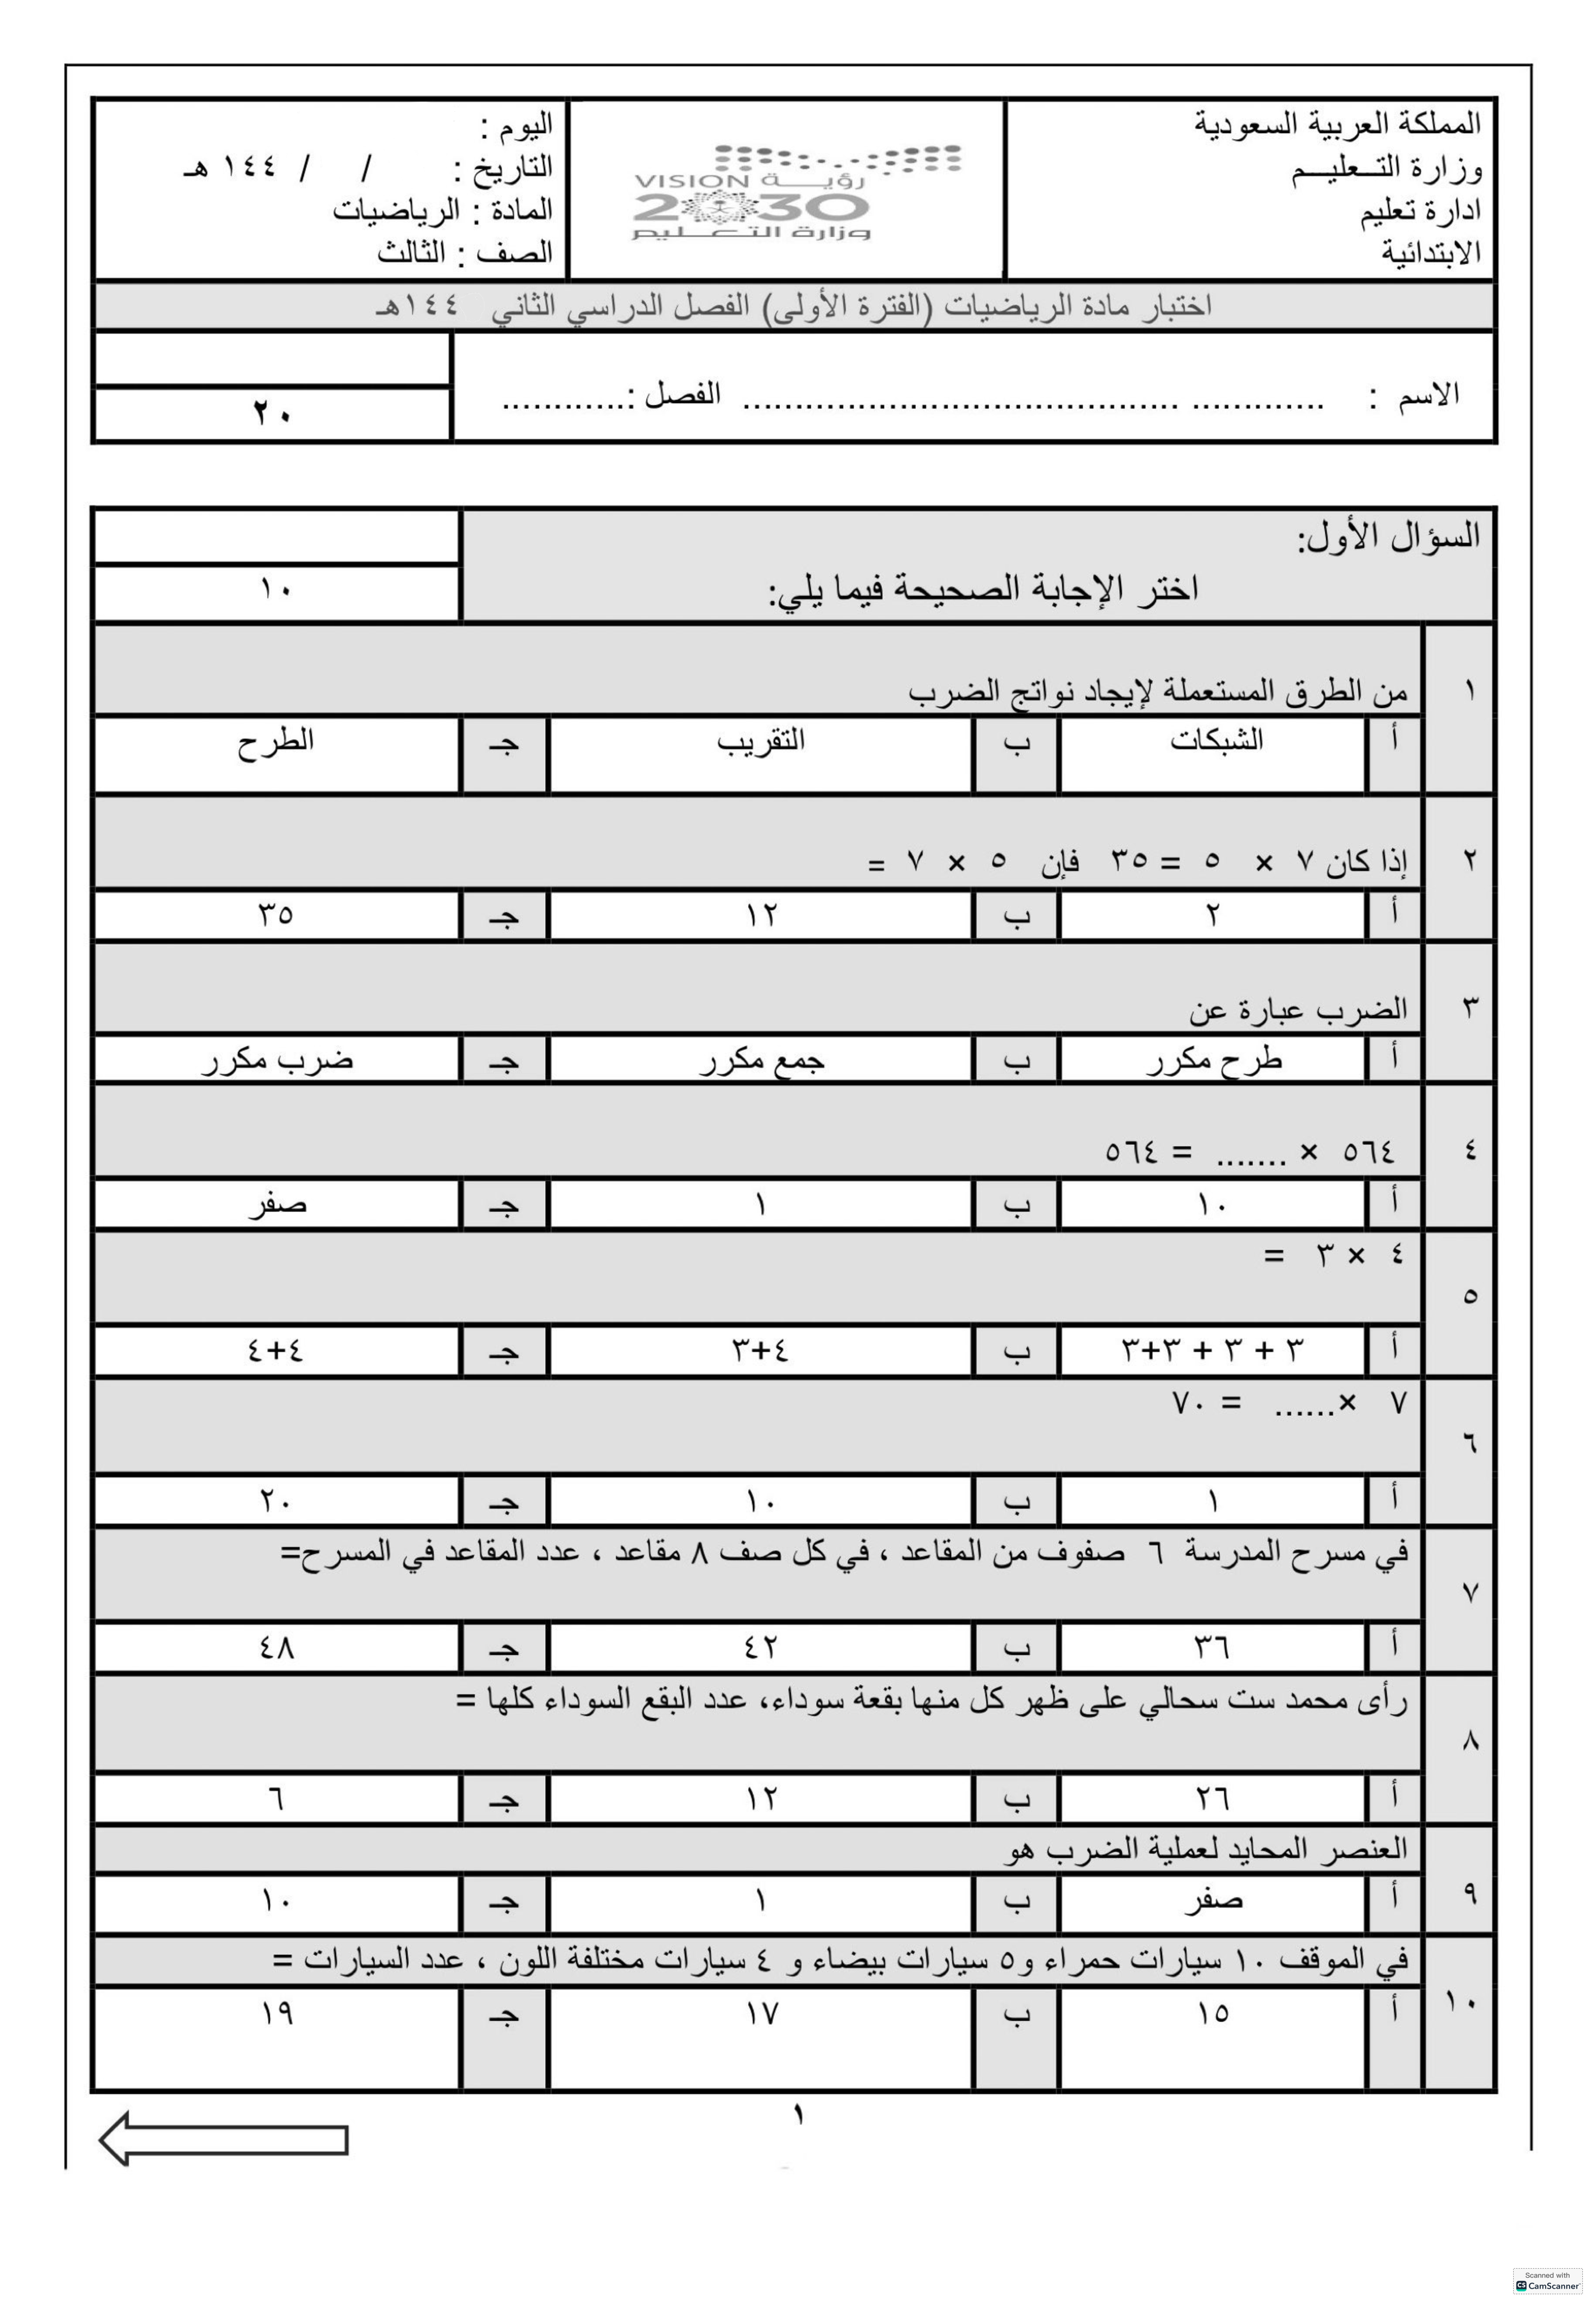 المملكة العربية السعودية
وزارة التـعليـم
ادارة تعليم
الابتدائية
VISION رؤيــة
2030
وزارة التـعـليم
اليوم :
التاريخ : / / ١٤٤ هـ
المادة : الرياضيات
الصف : الثالث
اختبار مادة الرياضيات (الفترة الأولى) الفصل الدراسي الثاني ١٤٤هـ
الاسم : ............. .......................................... الفصل :............
٢٠
السؤال الأول:
اختر الإجابة الصحيحة فيما يلي:
١٠
١ من الطرق المستعملة لإيجاد نواتج الضرب
أ الشبكات ب التقريب جـ الطرح
٢ إذا كان ٧ × ٥ = ٣٥ فإن ٥ × ٧ =
أ ٢ ب ١٢ جـ ٣٥
٣ الضرب عبارة عن
أ طرح مكرر ب جمع مكرر جـ ضرب مكرر
٤ ٥٦٤ × ....... = ٥٦٤
أ ١٠ ب ١ جـ صفر
٥ ٤ × ٣ =
أ ٣ + ٣ + ٣+٣ ب ٤+٣ جـ ٤+٤
٦ ٧ ×...... = ٧٠
أ ١ ب ١٠ جـ ٢٠
٧ في مسرح المدرسة ٦ صفوف من المقاعد ، في كل صف ٨ مقاعد ، عدد المقاعد في المسرح=
أ ٣٦ ب ٤٢ جـ ٤٨
٨ رأى محمد ست سحالي على ظهر كل منها بقعة سوداء، عدد البقع السوداء كلها =
أ ٢٦ ب ١٢ جـ ٦
٩ العنصر المحايد لعملية الضرب هو
أ صفر ب ١ جـ ١٠
١٠ في الموقف ١٠ سيارات حمراء و٥ سيارات بيضاء و ٤ سيارات مختلفة اللون ، عدد السيارات =
أ ١٥ ب ١٧ جـ ١٩
١
Scanned with
CS CamScanner